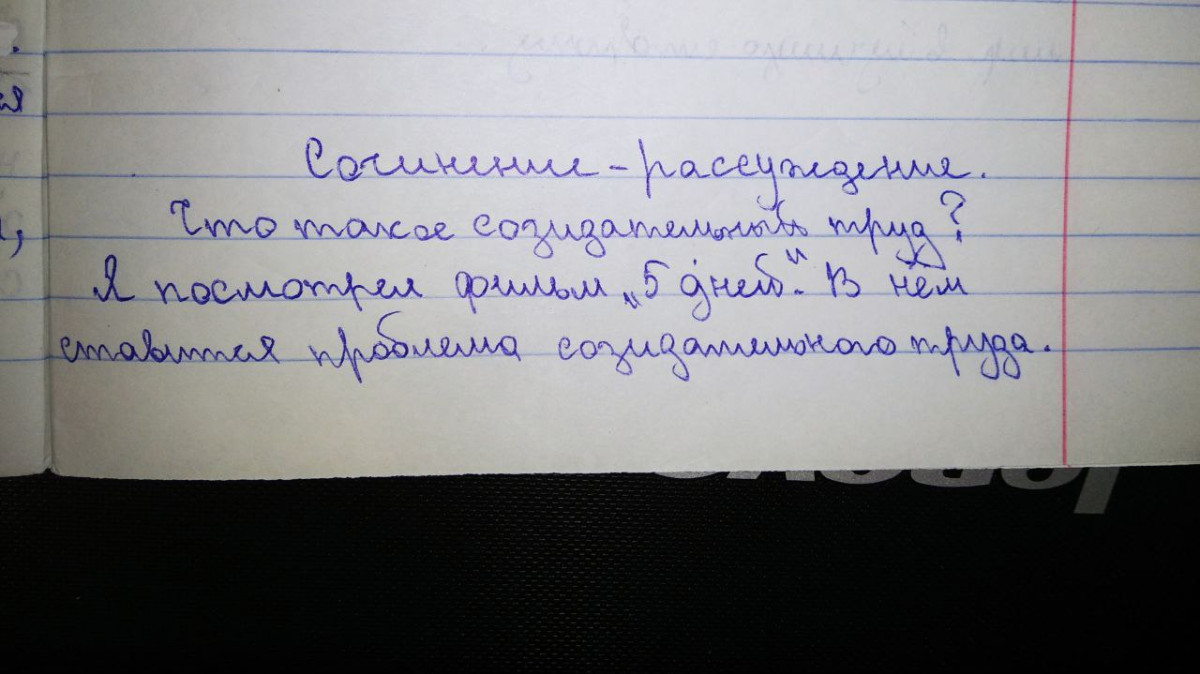 я
Сочинение-рассуждение.
Что такое созидательный труд?
Я посмотрел фильм „5 дней“. В нём
ставится проблема созидательного труда.